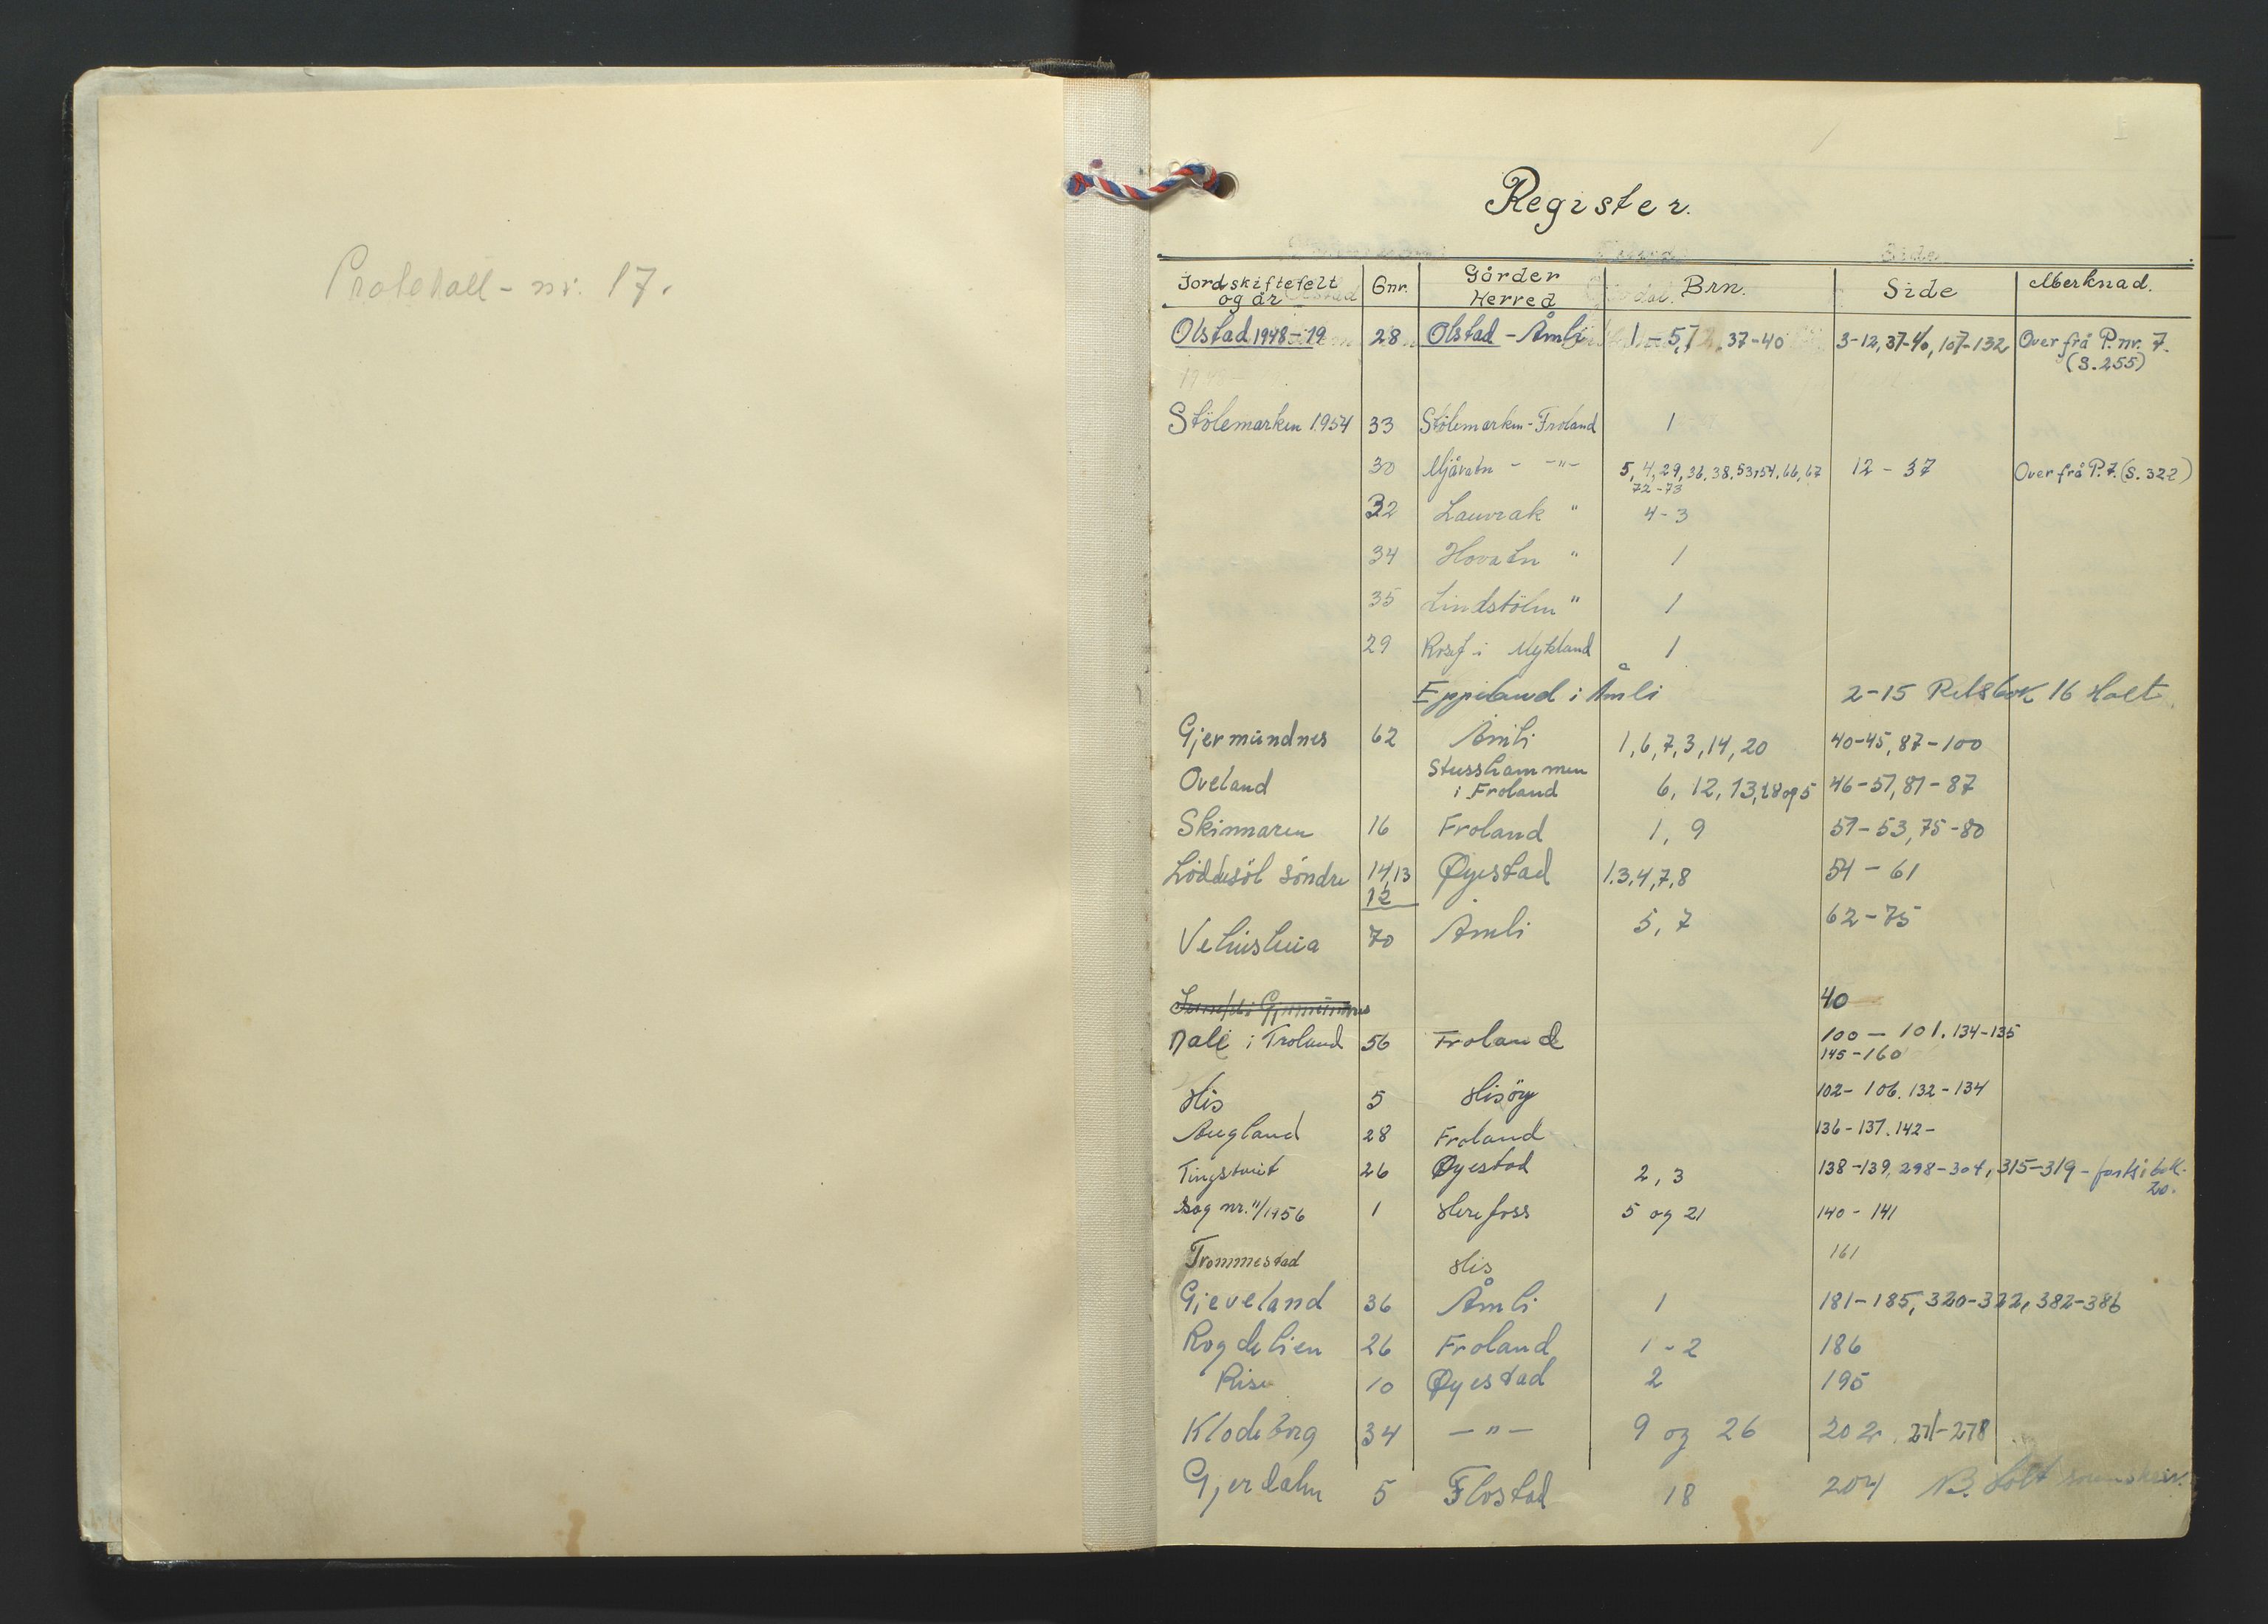 Protokoll - nr. 17.
Register.
Jordskiftefelt og år Gnr. Gårder Herred Brn. Side Merknad.
Olstad 1948-19 28 Olstad - Åmli 1-5,7, 37-40 3-12, 37-40, 107-132 Over frå P.nr. 7.
(S. 255)
1948-
Stölemarken 1954 33 Stölemarken - Froland 1
30 Mjåvatn - -"- 5, 4, 29, 36, 38, 53, 54, 66, 67 12 - 37 Over frå P.7. (S. 322)
72-73
32 Lauvrak " 4-3
34 Hovatn " 1
35 Lindstölm " 1
29 i Mykland 1
Eppeland i Åmli 2-15 Retsbok 16 Holt
Gjermundnes 62 Åmli 1, 6, 7, 3, 14, 20 40-45, 87-100
Oveland Stusshammen
i Froland 6, 12, 13, 18 og 5 46-51, 81-87
Skinnaren 16 Froland 1, 9 51-53, 75-80
Löddesöl söndre 14,13 Øyestad 1.3.4,7.8 54 - 61
12
Vehusheia 70 Åmli 5, 7 62-75
40
Dale i Froland 56 Froland 100 - 101. 134-135
145-160
His 5 Hisöy 102- 106. 132-134
Augland 28 Froland 136-137. 142-
Tingstveit 26 Øyestad 2, 3 138-139, 298-304, 315-319 - forts i bok
20.
Sag nr. 11/1956 1 Herefoss 5 og 21 140 - 141
Trommestad His 161
Gjeveland 36 Åmli 1 181-185, 320-322, 382-386
Rogdelien 26 Froland 1-2 186
Rise 10 Øyestad 2 195
Klodeborg 34 -"- 9 og 26 202. 271-278
Gjerdalen 5 Flostad 18 204 B. Holt